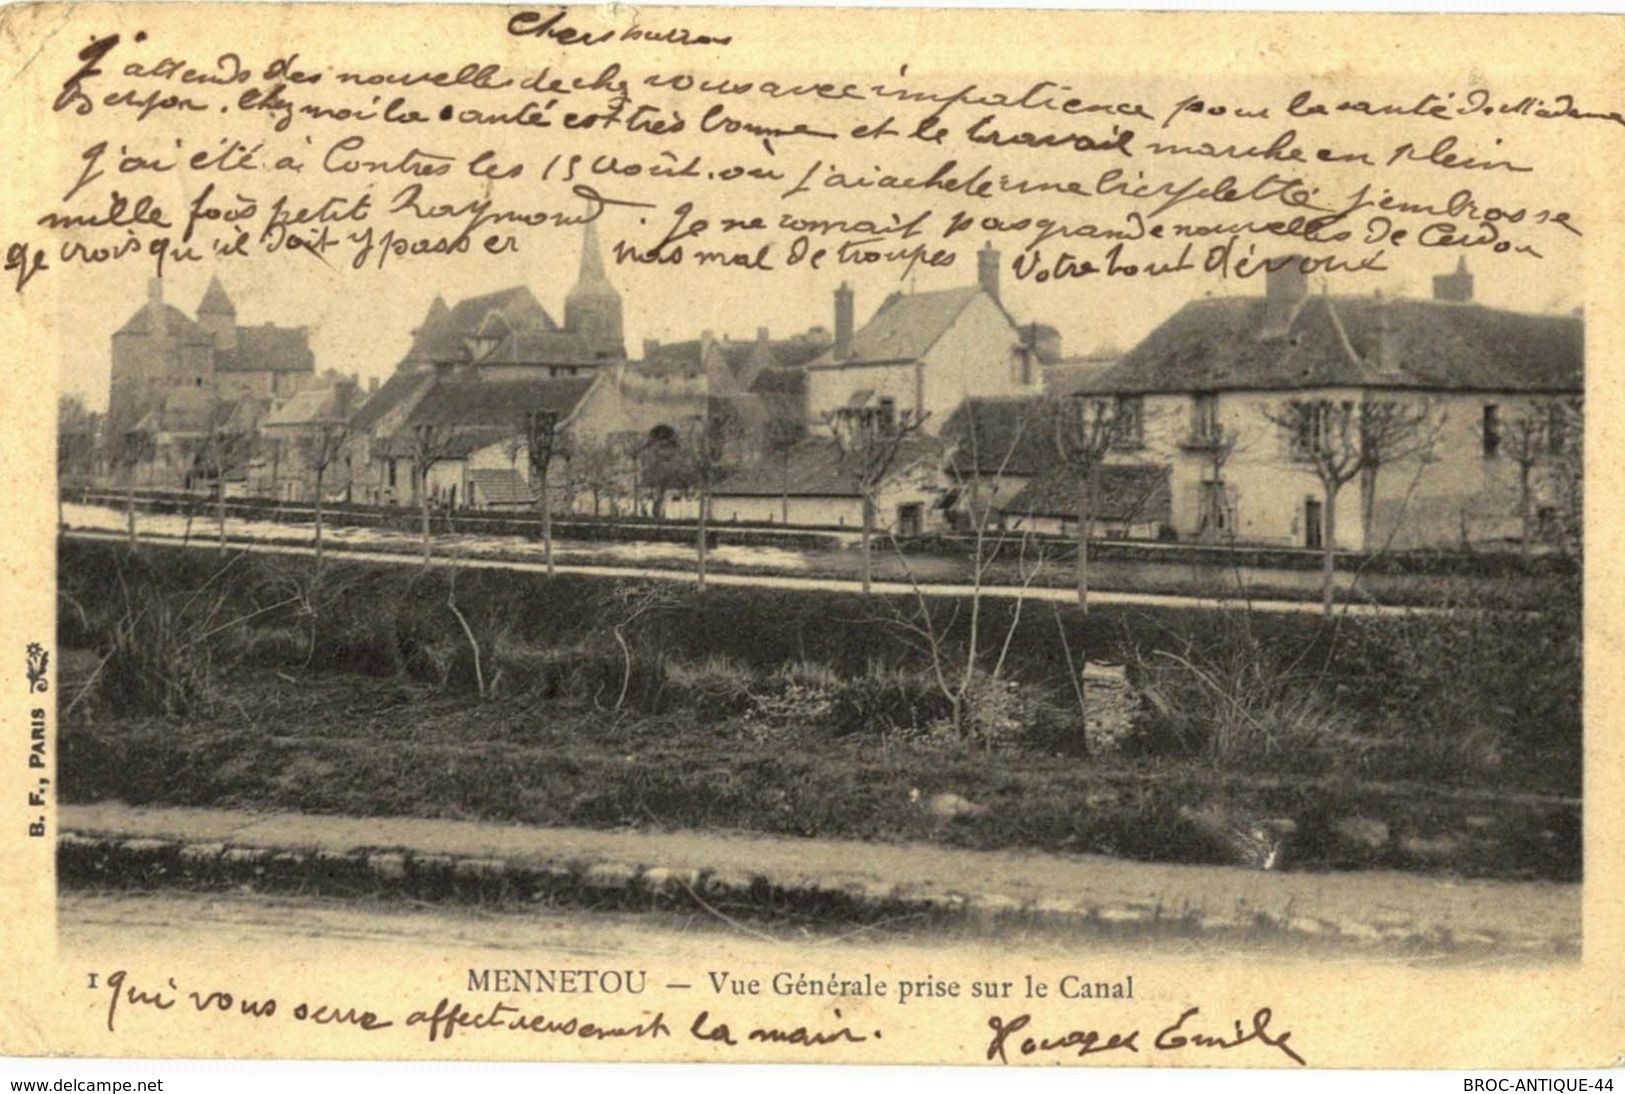 Chers
J'attends des nouvelles de chez vous avec impatience pour la santé de Madame
Chez moi la santé est très bonne et le travail marche en plein
J'ai été à Contres les 15 Août. où j'ai acheté une bicyclette. J'embrasse
mille fois petit Raymond. Je ne pas grande nouvelles de Cerdon
Je crois qu'il doit y passer pas mal de troupes Votre tout dévoué
B. F., PARIS
1 MENNETOU — Vue Générale prise sur le Canal
qui vous serre affectueusement la main.
Emile
www.delcampe.net
BROC-ANTIQUE-44